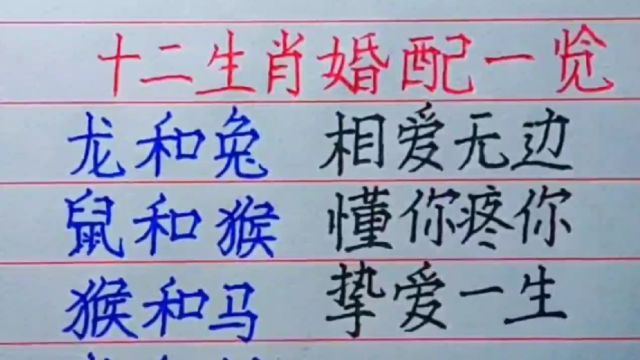 十二生肖婚配一览
龙和兔 相爱无边
鼠和猴 懂你疼你
猴和马 挚爱一生